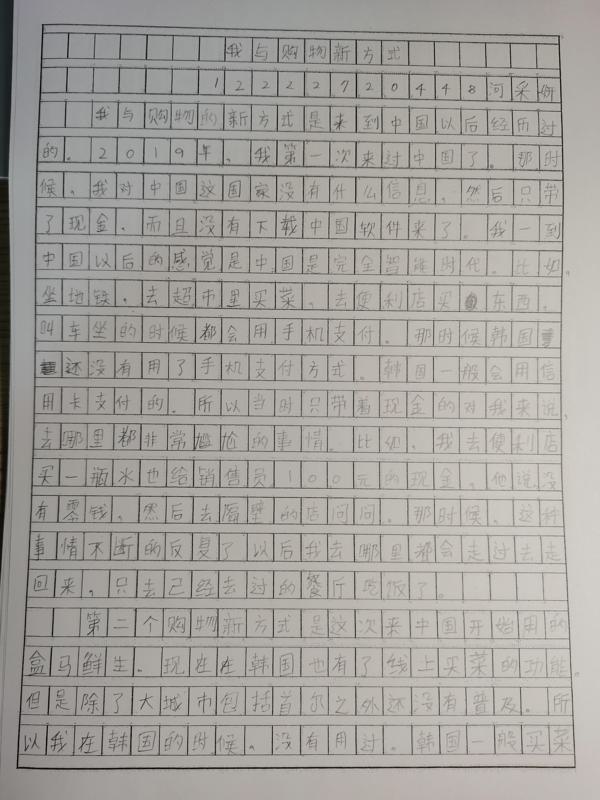 我与购物新方式
12222720448河采妍
我与购物的新方式是来到中国以后经历过
的。2019年、我第一次来过中国了。那时
候、我对中国这国家没有什么信息、然后只带
了现金、而且没有下载中国软件来了。我一到
中国以后的感觉是中国是完全智能时代。比如、
坐地铁、去超市里买菜、去便利店买东西、
叫车坐的时候都会用手机支付。那时候韩国
还没有用了手机支付方式。韩国一般会用信
用卡支付的、所以当时只带着现金的对我来说、
去哪里都非常尴尬的事情。比如、我去便利店
买一瓶水也给销售员100元的现金、他说没
有零钱、然后去隔壁的店问问。那时候、这种
事情不断的反复了以后我去哪里都会走过去走
回来、只去已经去过的餐厅吃饭了。
第二个购物新方式是这次来中国开始用的
盒马鲜生。现在在韩国也有了线上买菜的功能。
但是除了大城市包括首尔之外还没有普及。所
以我在韩国的时候、没有用过。韩国一般买菜